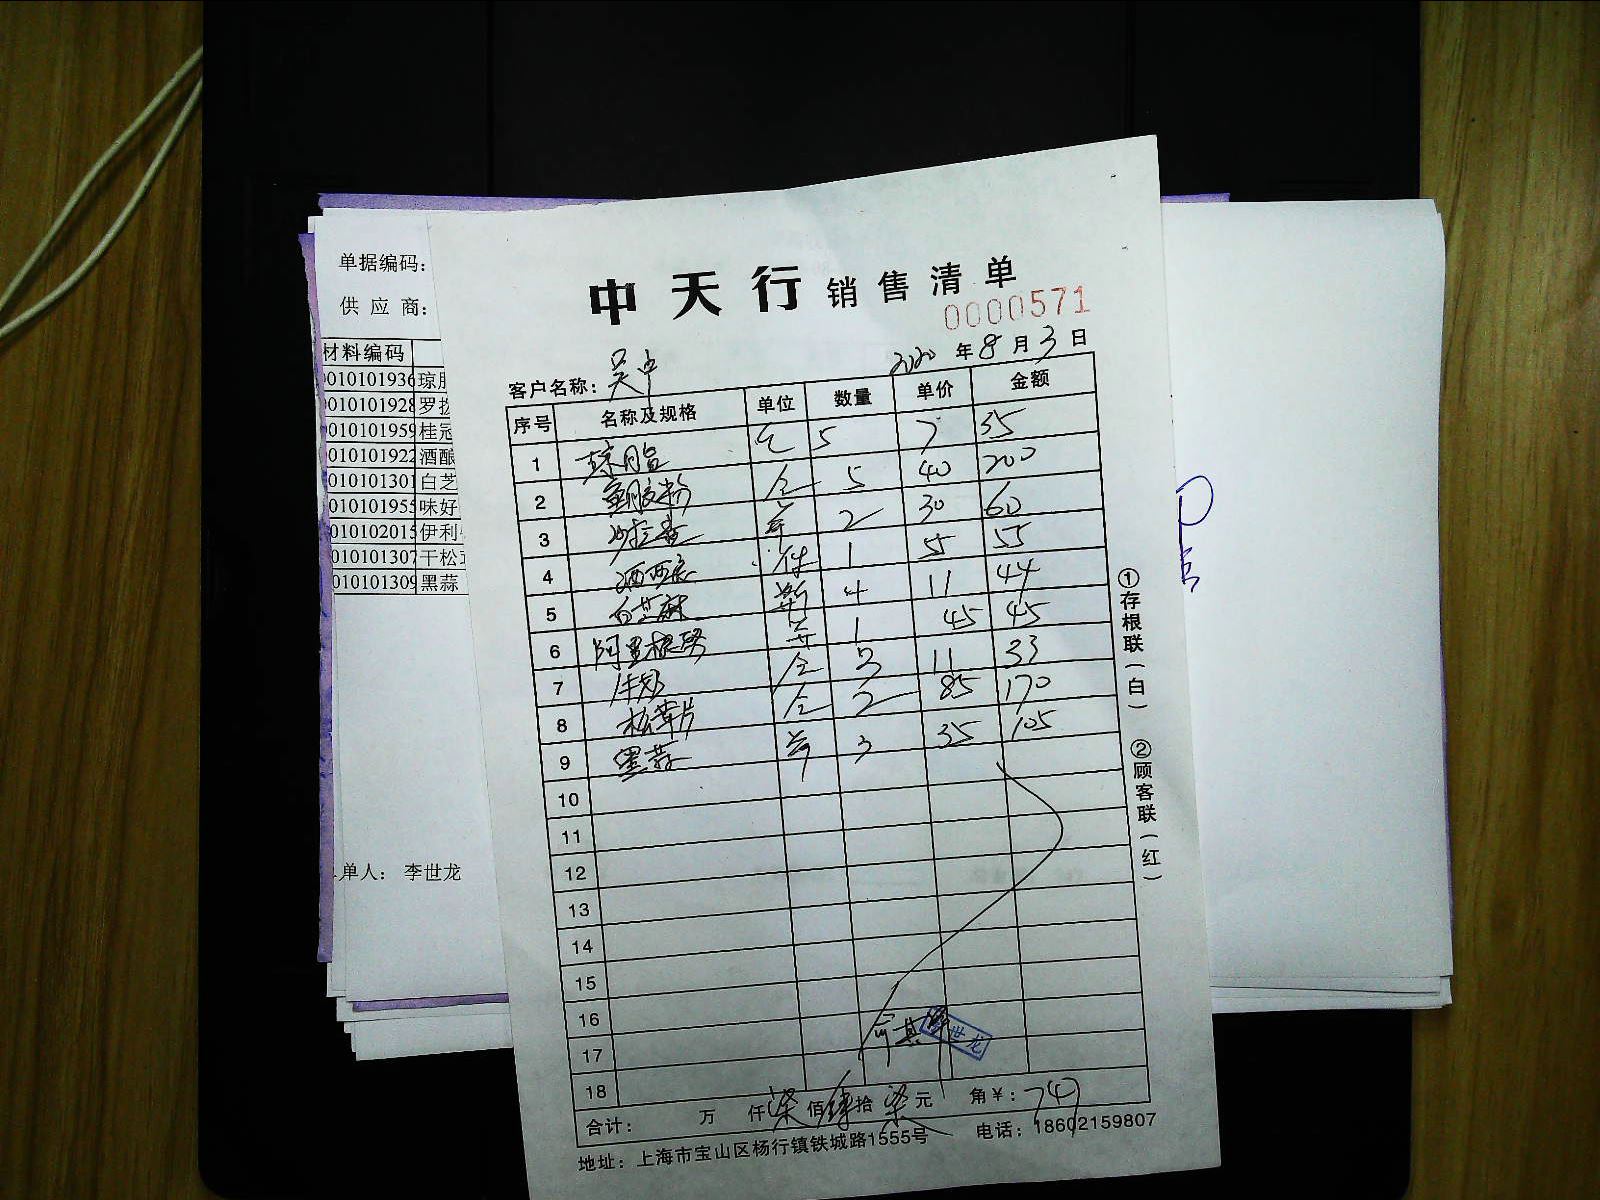 单据编码：
供 应 商：
材料编码
0010101936 琼脂
0010101928 罗拔
0010101959 桂冠
0010101922 酒酿
0010101301 白芝
0010101955 味好
0010102015 伊利
0010101307 干松茸
0010101309 黑蒜
单人： 李世龙
中天行 销售清单
0000571
客户名称：吴中 2020 年 8 月 3 日
序号 名称及规格 单位 数量 单价 金额
1 琼脂 包 5 7 35
2 鱼胶粉 包 5 40 200
3 沙拉酱 2 30 60
4 件 1 55 55
5 白芝麻 斤 4 11 44
6 阿里根努 1 45 45
7 牛奶 仓 3 11 33
8 松茸片 仓 2 85 170
9 黑蒜 3 35 105
10
11
12
13
14
15
16
17
18
世龙
合计： 万 仟 柒 佰 肆 拾 柒 元 角 ¥：747
地址：上海市宝山区杨行镇铁城路1555号 电话：18602159807
①存根联（白） ②顾客联（红）